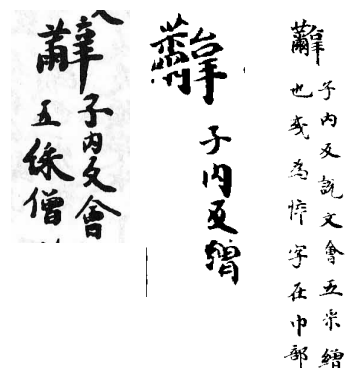 子内反會
五綵僧
子内反繒
子内反説文會五采繒
也或為字在巾部